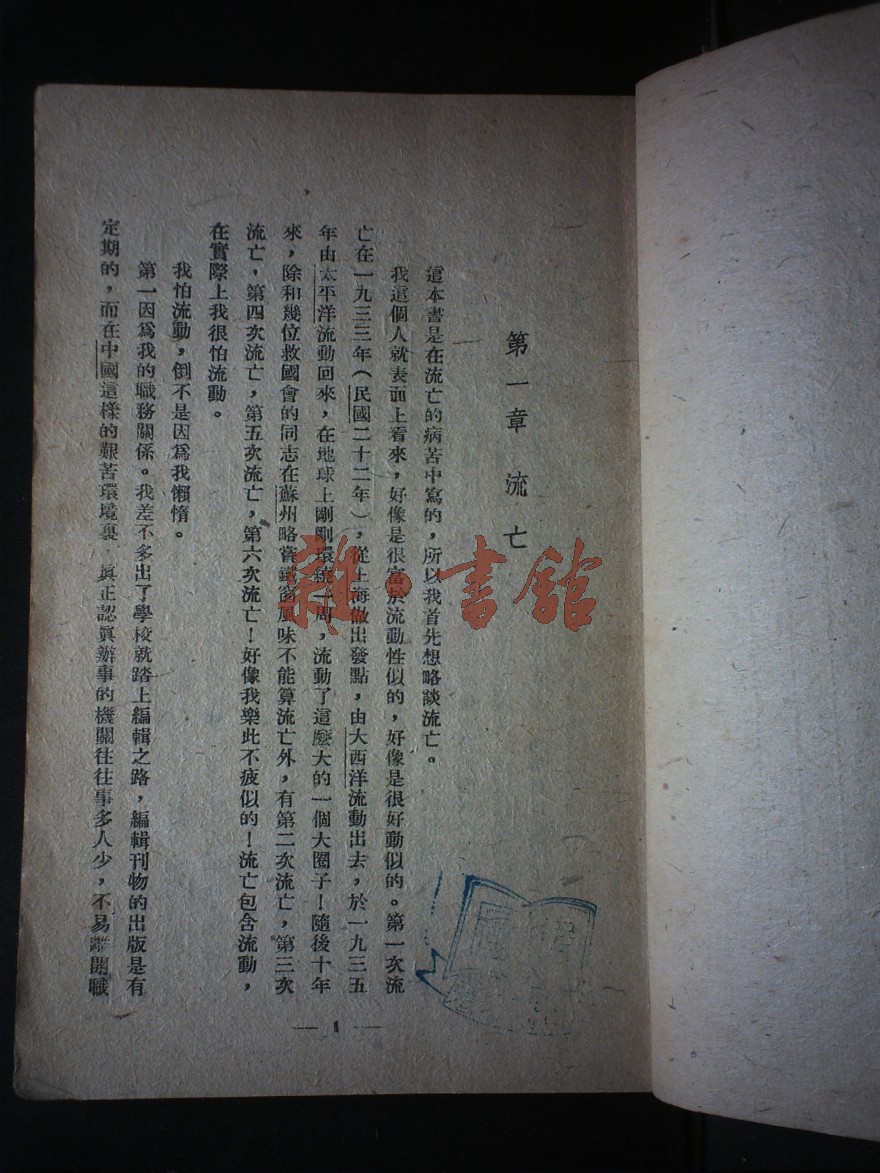 第一章 流亡
這本書是在流亡的病苦中寫的，所以我首先想略談流亡。
我這個人就表面上看來，好像是很富於流動性似的，好像是很好動似的。第一次流
亡在一九三三年（民國二十二年），從上海做出發點，由大西洋流動出去，於一九三五
年由太平洋流動回來，在地球上剛剛環繞一周，流動了這麼大的一個大圈子！隨後十年
來，除和幾位救國會的同志在蘇州略嘗鐵窗風味不能算流亡外，有第二次流亡，第三次
流亡，第四次流亡，第五次流亡，第六次流亡！好像我樂此不疲似的！流亡包含流動，
在實際上我很怕流動。
我怕流動，倒不是因爲我懶惰。
第一因爲我的職務關係。我差不多出了學校就踏上編輯之路，編輯刊物的出版是有
定期的，而在中國這樣的艱苦環境裏，眞正認眞辦事的機關往往事多人少，不易離開職
— 1 —
雜·書館